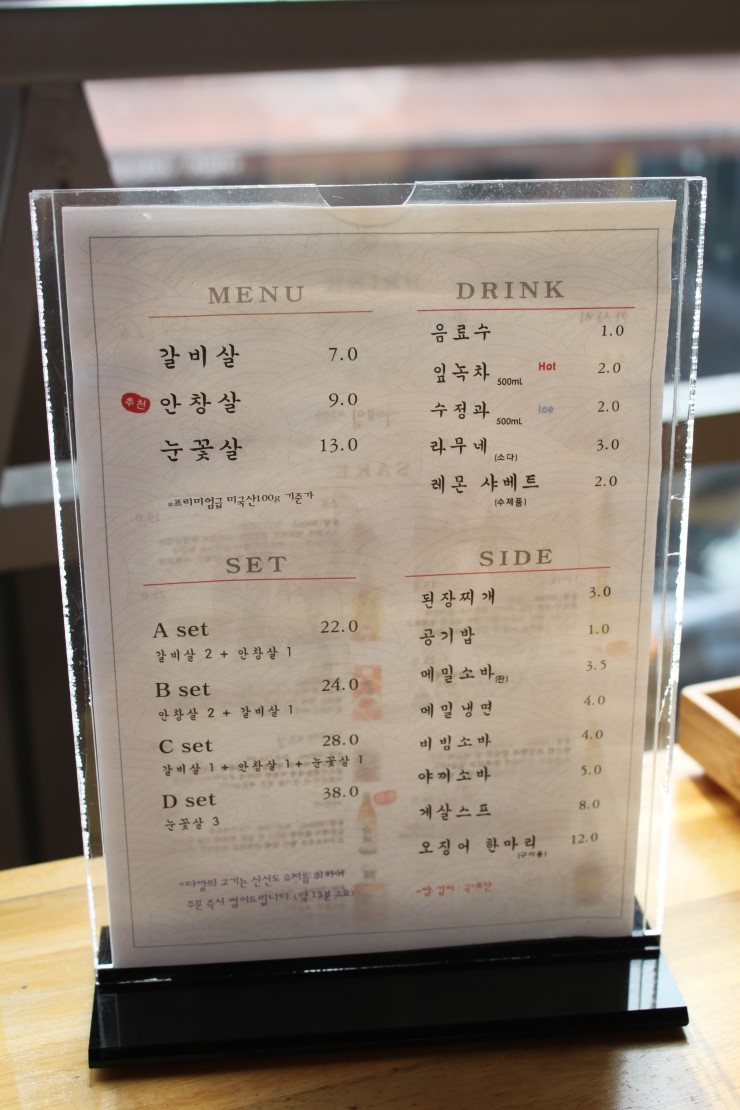 MENU
갈비살 7.0
추천 안창살 9.0
눈꽃살 13.0
*프리미엄급 미국산100g 기준가
DRINK
음료수 1.0
잎녹차 500mL Hot 2.0
수정과 500mL Ice 2.0
라무네 (소다) 3.0
레몬 샤베트 2.0
(수제품)
SET
A set 22.0
갈비살 2 + 안창살 1
B set 24.0
안창살 2 + 갈비살 1
C set 28.0
갈비살 1 + 안창살 1 + 눈꽃살 1
D set 38.0
눈꽃살 3
*다짱의 고기는 신선도 유지를 위하여
주문 즉시 썰어드립니다 (약 15분 소요)
SIDE
된장찌개 3.0
공기밥 1.0
메밀소바(판) 3.5
메밀냉면 4.0
비빔소바 4.0
야끼소바 5.0
게살스프 8.0
오징어 한마리 12.0
(구이용)
*쌀, 김치 : 국내산